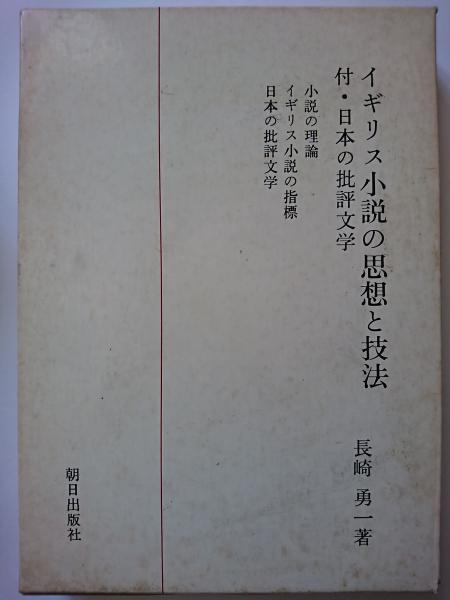 イギリス小説の思想と技法
付・日本の批評文学
小説の理論
イギリス小説の指標
日本の批評文学
長崎 勇一著
朝日出版社